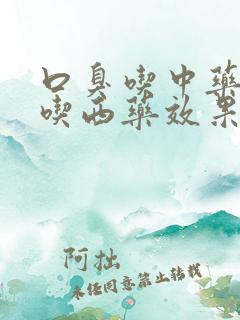 口臭喫中藥
喫西藥效果
阿拙
未经同意禁止转载